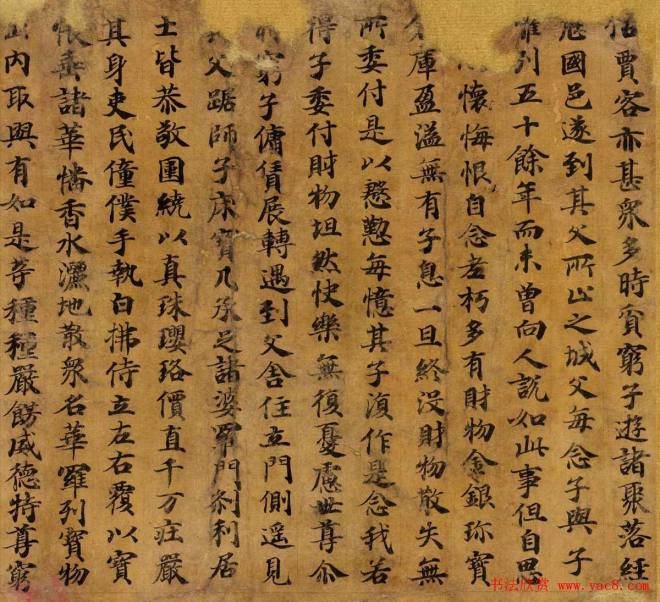 估賈客亦甚眾多時貧窮子遊諸聚落經
歷國邑遂到其父所止之城父每念子與子
離別五十餘年而未曾向人說如此事但自思
懷悔恨自念老朽多有財物金銀珎寶
庫盈溢無有子息一旦終没財物散失無
所委付是以慇懃每憶其子復作是念我若
得子委付財物坦然快樂無復憂慮世尊尒
窮子傭賃展轉遇到父舍住立門側遥見
父踞師子床寶几承足諸婆羅門剎利居
士皆恭敬圍繞以真珠瓔珞價直千万莊嚴
其身吏民僮僕手執白拂侍立左右覆以寶
帳垂諸華幡香水灑地散眾名華羅列寶物
出内取與有如是等種種嚴飾威德特尊窮
书法欣赏.www.yac8.com